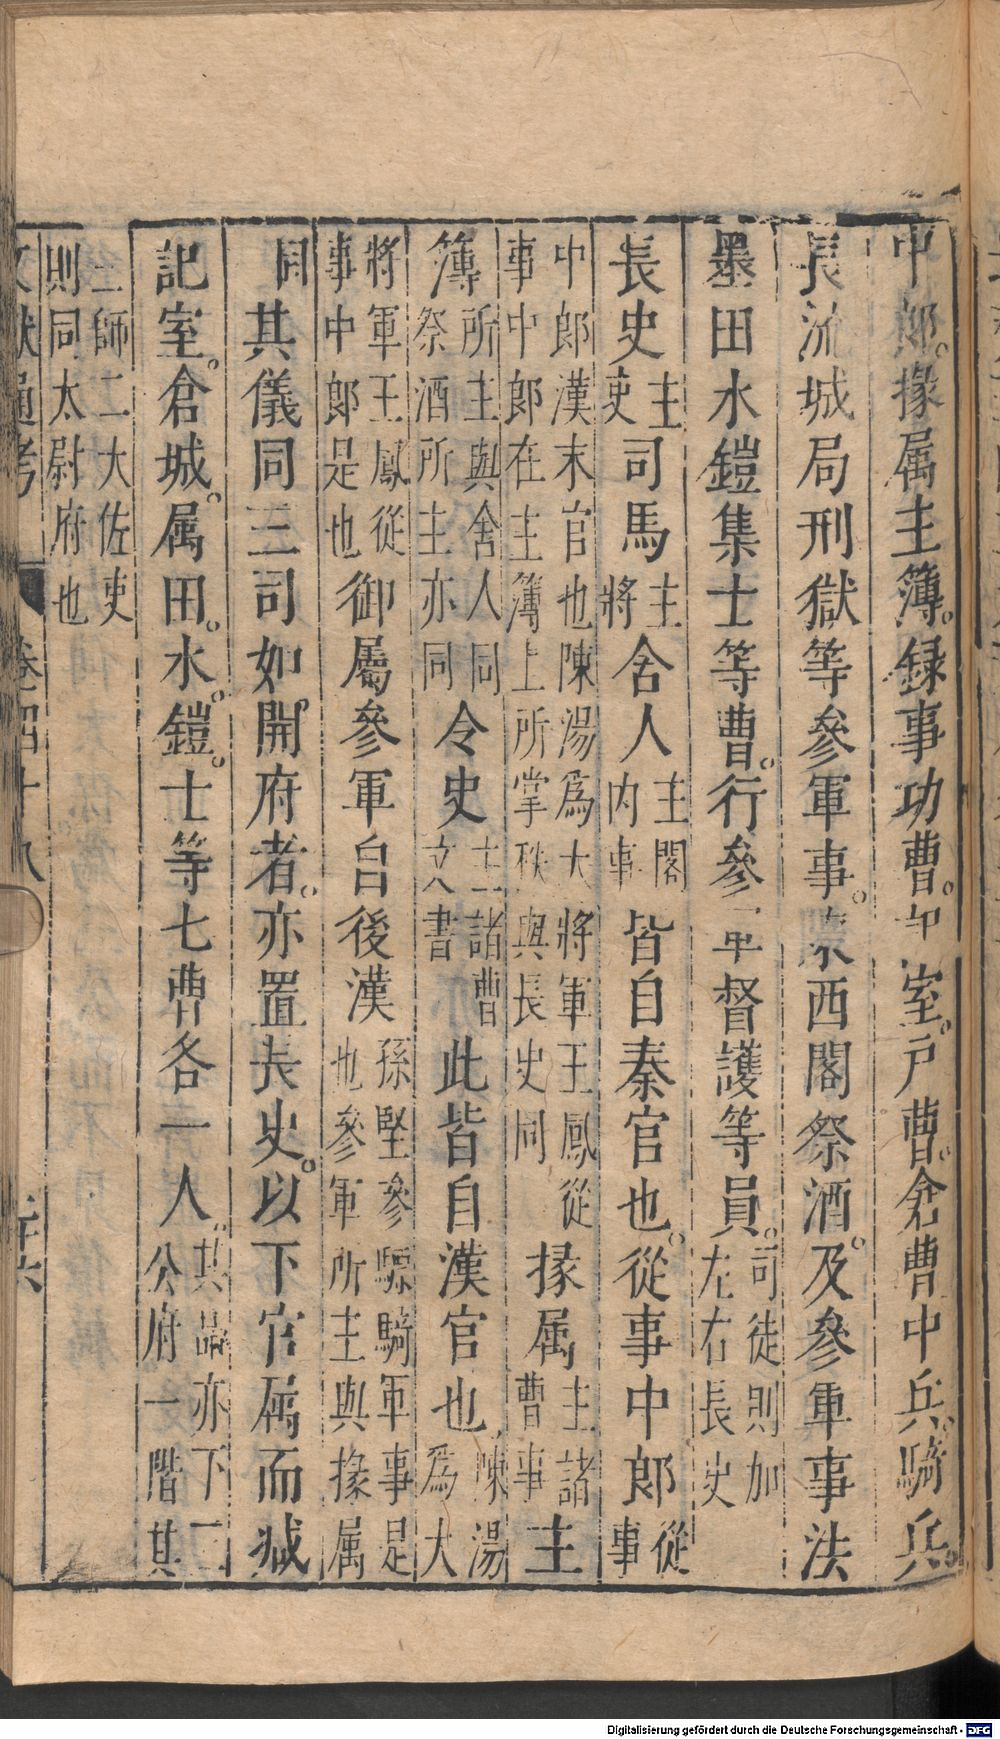 中郎。掾属主簿。録事功曹。室。戶曹。倉曹中兵。騎兵。
長流城局刑獄等參軍事。東西閤祭酒。及參軍事法
墨田水鎧集士等曹。行參軍督護等員。司徒則加
左右長史
長史主
吏司馬主
將舍人主閤
內事皆自秦官也。從事中郎從
事
中郎漢末官也陳湯為大將軍王鳳從
事中郎在主簿上所掌秩與長史同掾属主諸
曹事主
簿所主與舍人同
祭酒所主亦同令史主諸曹
文書此皆自漢官也陳湯
為大
將軍王鳳從
事中郎是也御屬參軍自後漢孫堅參驃騎軍事是
也參軍所主與掾属
同其儀同三司如開府者。亦置長史。以下官属而減
記室。倉城。属田。水鎧。士等七曹各一人。其品亦下二
公府一階其
三師二大佐吏
則同太尉府也
文獻通考 卷四十八
Digitalisierung gefördert durch die Deutsche Forschungsgemeinschaft - DFG